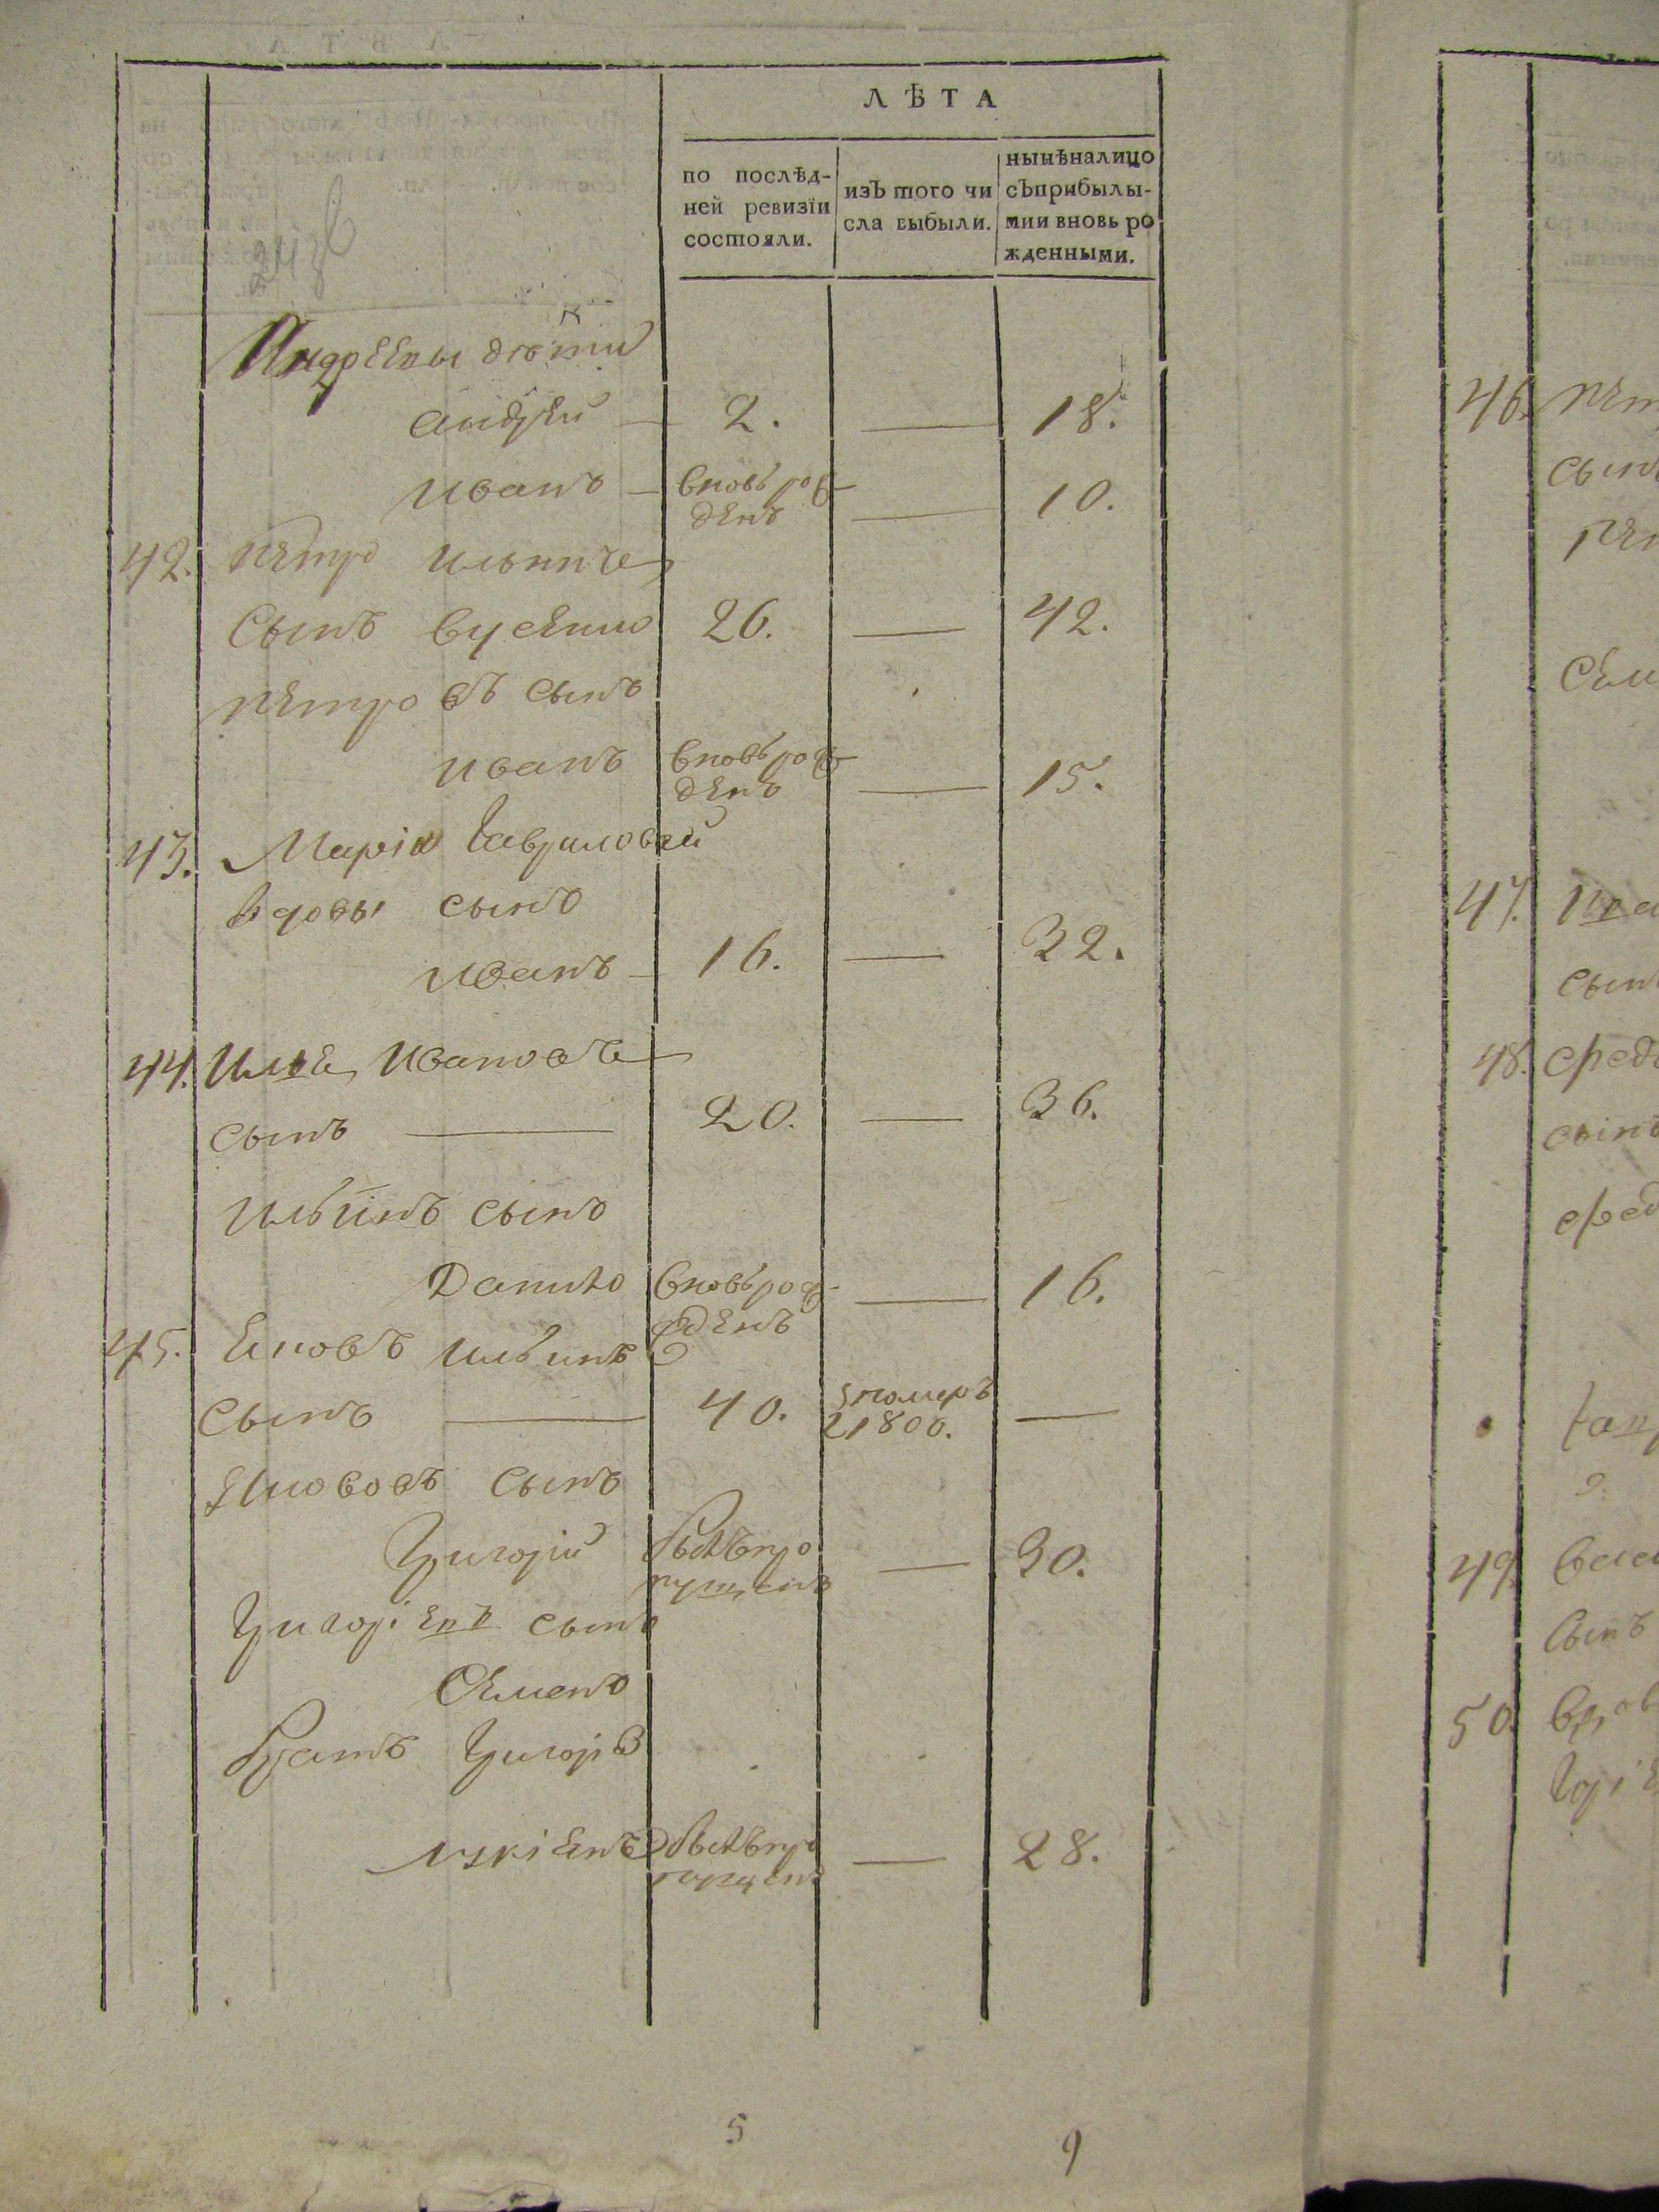 ЛѢТА
по послѣд-
ней ревизїи
состояли.
изЪ того чи
сла выбыли.
нынѣналицо
сЪприбылы-
ми и вновь ро
жденными.
243
Андрѣевы дѣти
андрей 2. — 18.
иванъ вновь рож
денъ — 10.
42. петро ильичъ
сынъ 26. — 42.
петровъ сынъ
иванъ вновь рож
денъ — 15.
43. Марїи гавриловой
вдовы сынъ
иванъ 16. — 32.
44. Илья Ивановъ
сынъ — 20. — 36.
ильинъ сынъ
Данило вновь рож
денъ — 16.
45. Яковъ ильинъ
сынъ — 40. померъ
1800. —
Якововъ сынъ
григорїй былъ про
пущенъ — 30.
григорїевъ сынъ
Семенъ
братъ григорїя
былъ про
пущенъ — 28.
5
9
46. пет
сынъ
пет
сем
47.
сынъ
48. фед
сынъ
фед
49.
сынъ
50. вдов